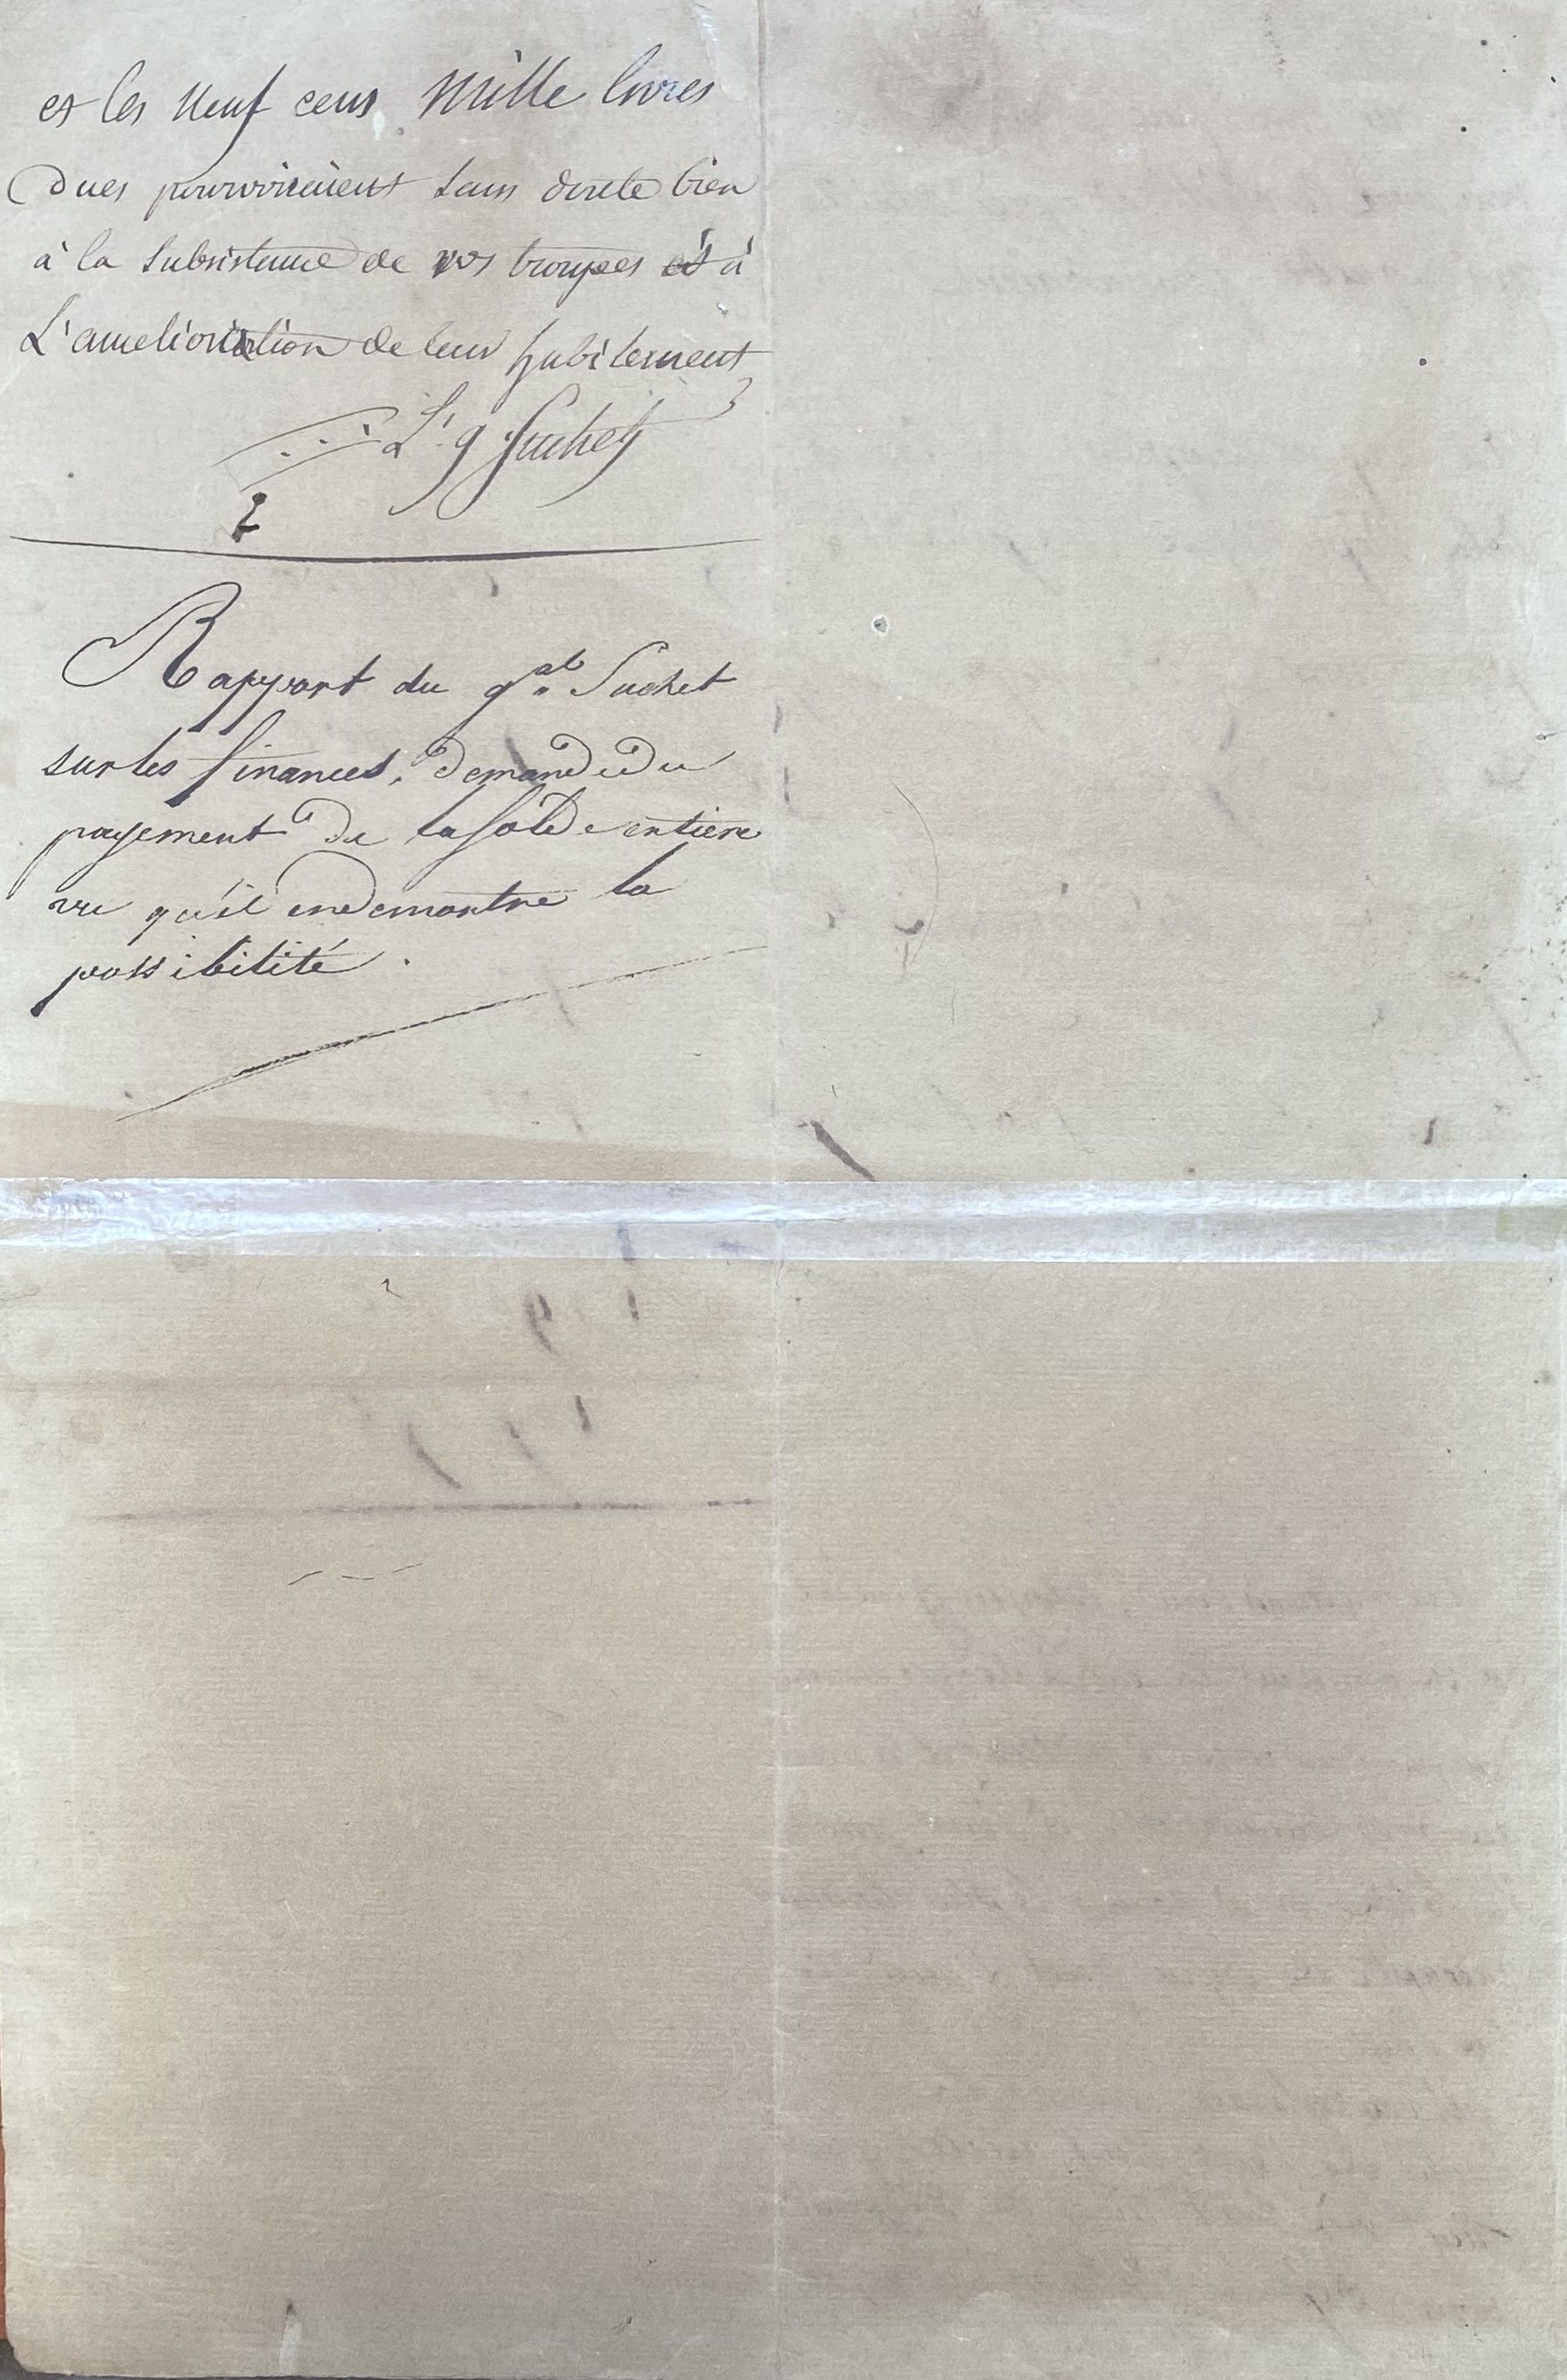 et les neuf cens mille livres
dues pourvoiraient sans doute bien
à la subsistance de vos troupes et à
L'amelioration de leur habilement
L. g Suchet
Rapport du gal Suchet
sur les finances, demande du
payement de la solde entiere
vu qu'il en demontre la
possibilité.